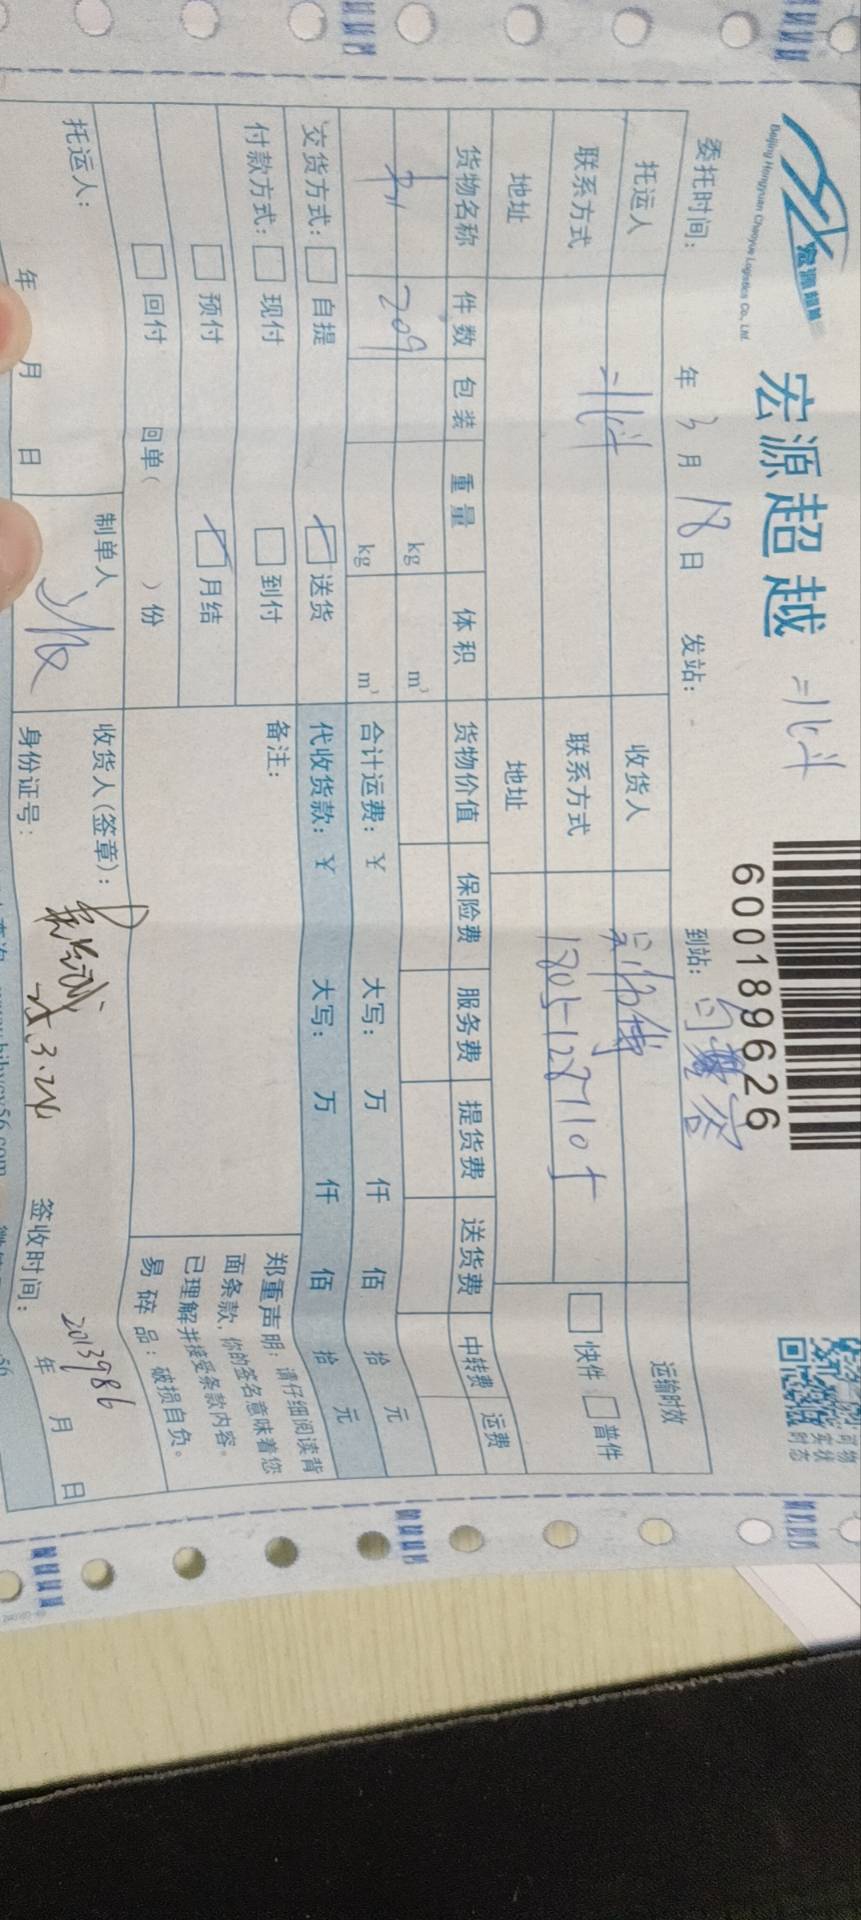 宏源超越
Beijing Hongyuan Chaoyue Logistics Co., Ltd.
北斗
600189626
委托时间: 年 3 月 18 日 发站: 到站:
托运人 北斗 收货人 运输时效
联系方式 联系方式 18051287105 快件 普件
地址 地址
货物名称 件数 包装 重量 体积 货物价值 保险费 服务费 提货费 送货费 中转费 运费
209 kg m³
kg m³ 合计运费: ¥ 大写: 万 仟 佰 拾 元
交货方式: 自提 送货 代收货款: ¥ 大写: 万 仟 佰 拾 元
付款方式: 现付 到付 备注:
预付 月结
回付 回单( )份
郑重声明: 请仔细阅读背
面条款, 你的签名意味着您
已理解并接受条款内容。
易碎品: 破损自负。
托运人: 制单人 收货人(签章):
年 月 日 身份证号: 25.3.24 签收时间: 年 月 日
2013986